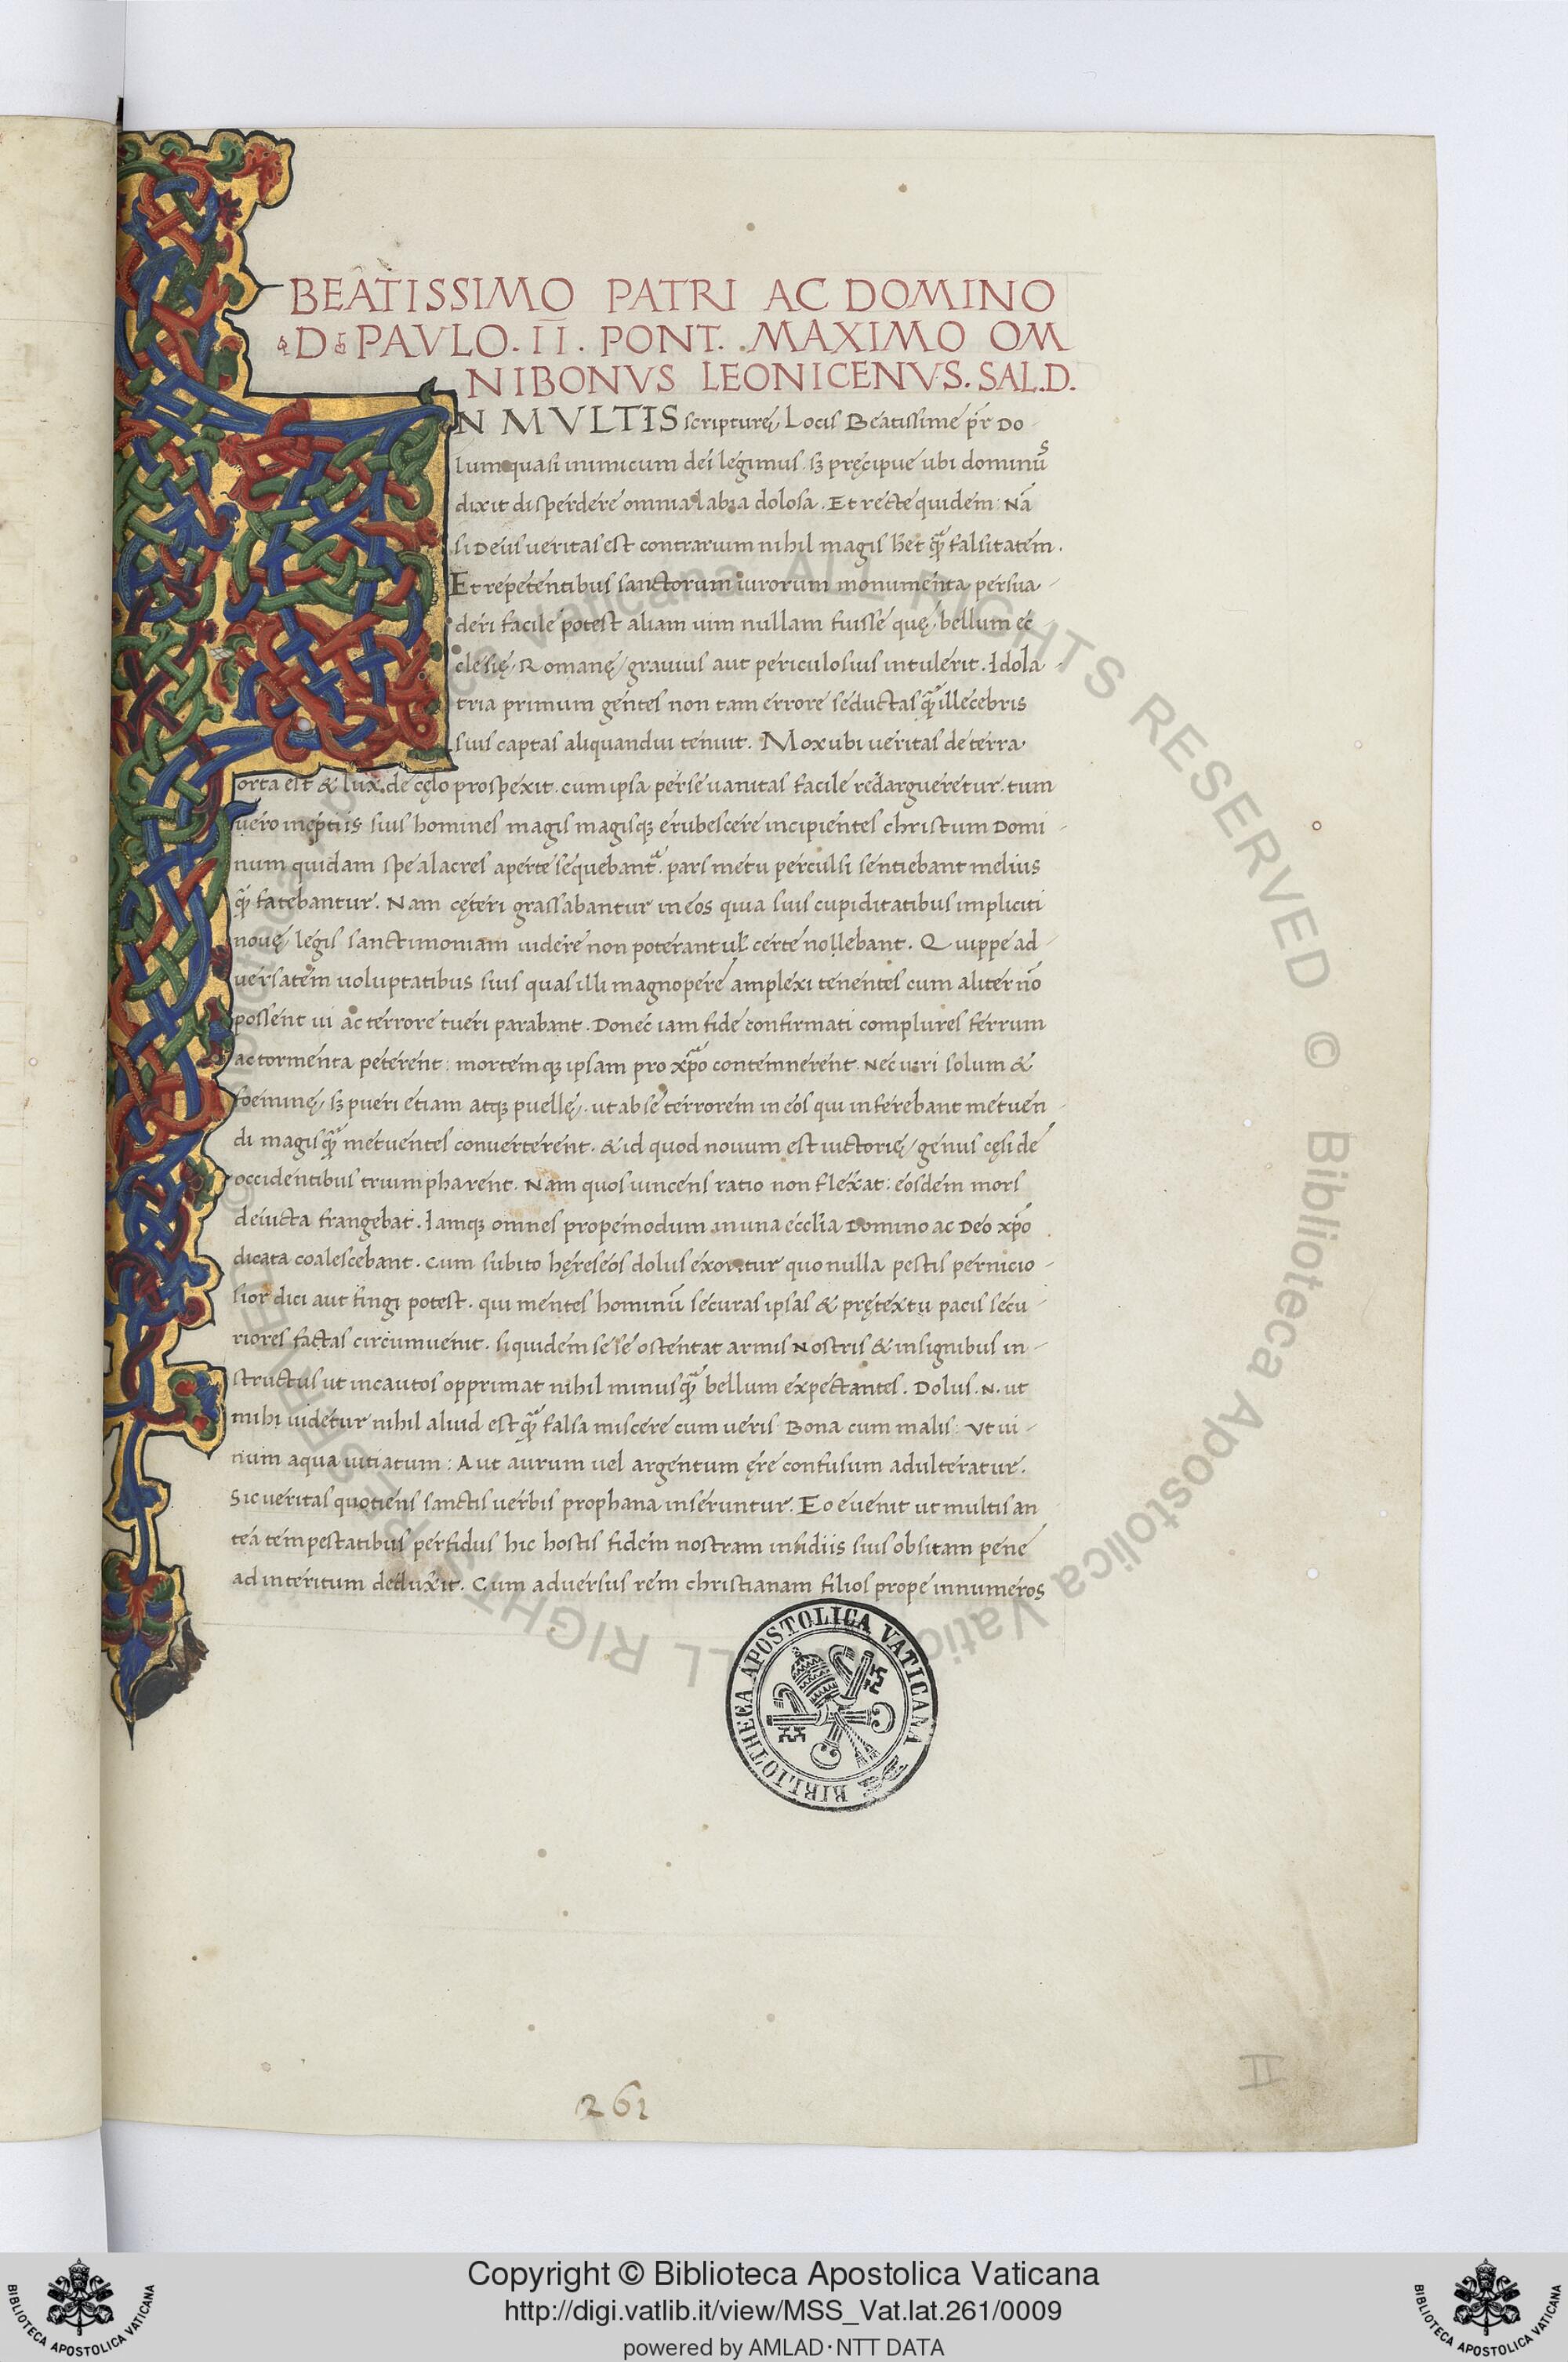 BEATISSIMO PATRI AC DOMINO
D PAVLO. II. PONT. MAXIMO OM
NIBONVS LEONICENVS. SAL.D.
N MVLTIS scripturę Locis Beatissime pr̄ Do-
lum quasi inimicum dei legimus. sꝫ pręcipue ubi dominūs
dixit disperdere omnia labia dolosa. Et recte quidem: Nā
si Deus ueritas est contrarium nihil magis het quā falsitatem.
Et repetentibus sanctorum uirorum monumenta persua-
deri facile potest aliam uim nullam fuisse quę bellum ec-
clesię Romanę grauius aut periculosius intulerit. Idola-
tria primum gentes non tam errore seductas quā illecebris
suis captas aliquandiu tenuit. Mox ubi ueritas de terra
orta est & lux de cęlo prospexit. cum ipsa per se uanitas facile redargueretur. tum
uero ineptiis suis homines magis magisqꝫ erubescere incipientes christum Domi-
num quidam spe alacres aperte sequebant᷑. pars metu perculsi sentiebant melius
quā fatebantur. Nam cęteri grassabantur in eos quia suis cupiditatibus impliciti
nouę legis sanctimoniam uidere non poterant uł certe nollebant. Quippe ad-
uersatem uoluptatibus suis quas illi magnopere amplexi tenentes cum aliter nō
possent ui ac terrore tueri parabant. Donec iam fide confirmati complures ferrum
ac tormenta peterent: mortemqꝫ ipsam pro xp̄o contemnerent. Nec uiri solum &
foeminę, sꝫ pueri etiam atqꝫ puellę. ut ab se terrorem in eos qui inferebant metuen-
di magis quā metuentes conuerterent. & id quod nouum est uictorię genus cęsi de
occidentibus triumpharent. Nam quos uincens ratio non flexat: eosdem mors
deiucta frangebat. Iamqꝫ omnes propemodum in una eccl̄ia Domino ac Deo xp̄o
dicata coalescebant. Cum subito hęreseos dolus exoritur quo nulla pestis pernicio-
sior dici aut fingi potest. qui mentes hominū securas ipsas & prętextu pacis secu-
riores factas circumuenit. siquidem sese ostentat armis Nostris & insignibus in-
structus ut incautos opprimat nihil minus quā bellum expectantes. Dolus. N. ut
mihi uidetur nihil aliud est quā falsa miscere cum ueris. Bona cum malis: Vt ui-
num aqua uitiatum: Aut aurum uel argentum ęre confusum adulteratur.
Sic ueritas quotiens sanctis uerbis prophana inseruntur. Eo euenit ut multis an
tea tempestatibus perfidus hic hostis fidem nostram insidiis suis obsitam pene
ad interitum deduxit. Cum aduersus rem christianam filios prope innumeros
BIBLIOTHECA APOSTOLICA VATICANA
261
II
ALL RIGHTS RESERVED © Biblioteca Apostolica Vaticana
Copyright © Biblioteca Apostolica Vaticana
http://digi.vatlib.it/view/MSS_Vat.lat.261/0009
powered by AMLAD·NTT DATA
BIBLIOTECA APOSTOLICA VATICANA
BIBLIOTECA APOSTOLICA VATICANA